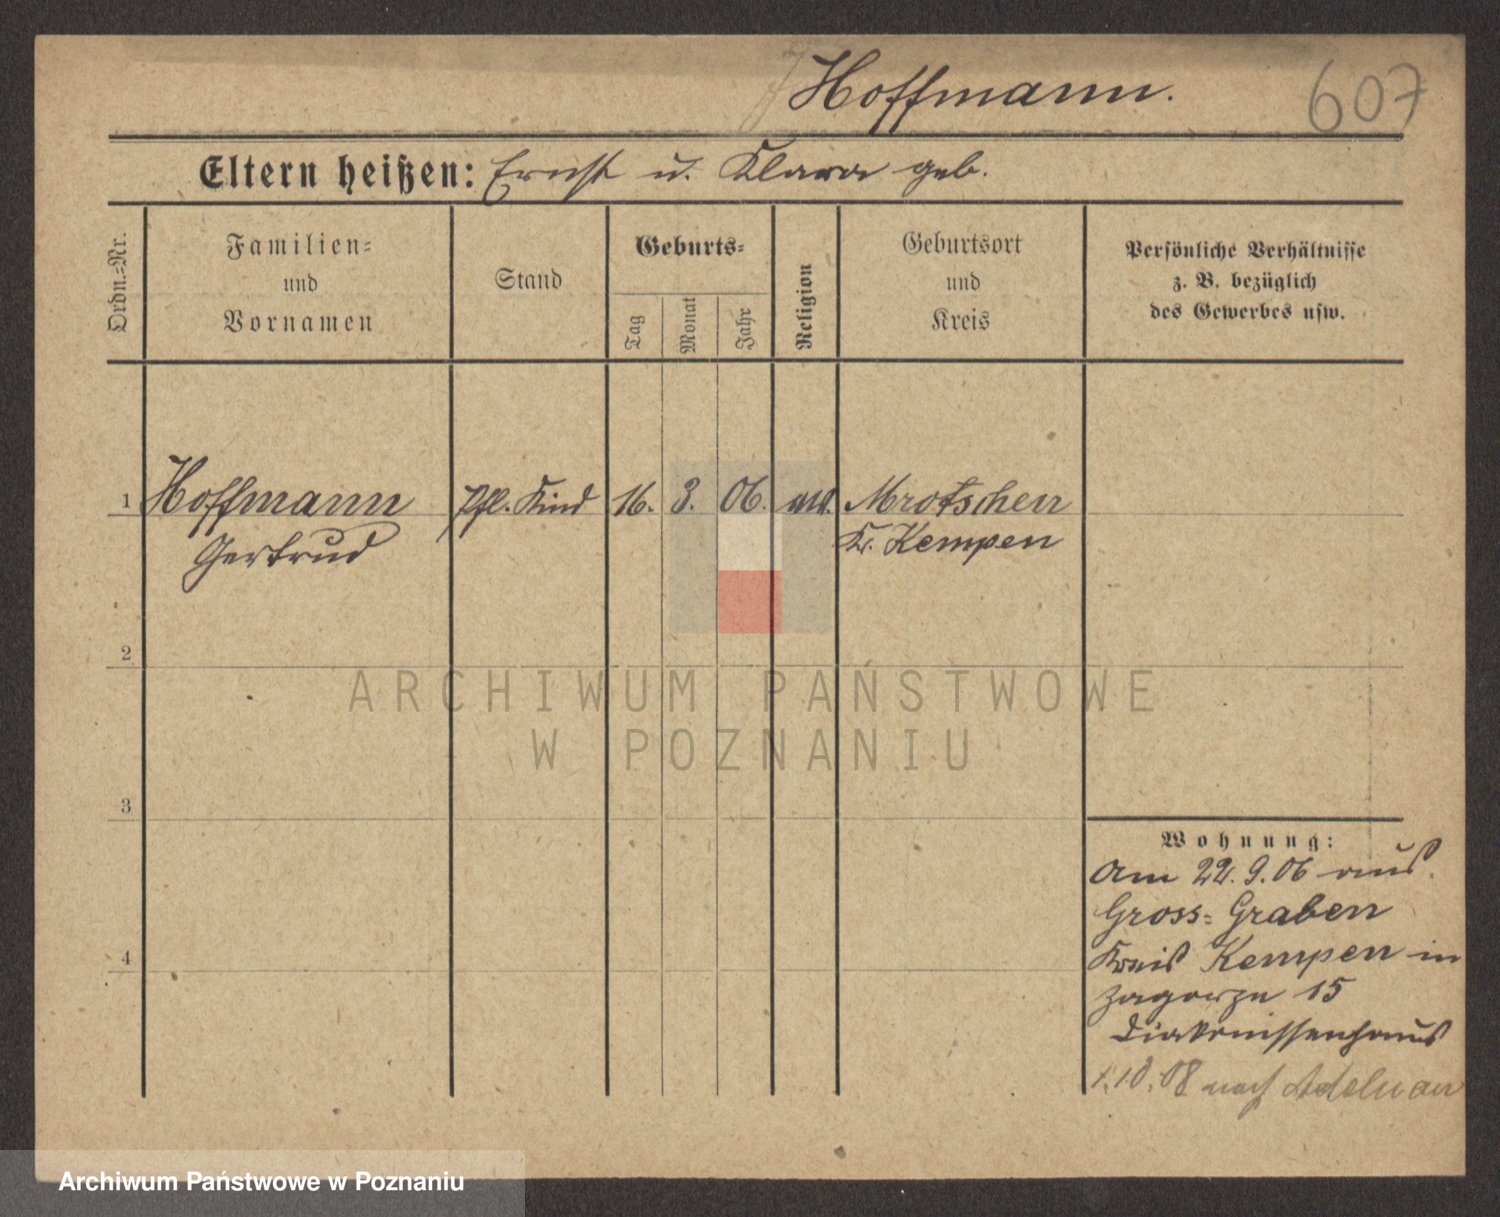 Hoffmann.
607
Eltern heißen: Ernst u. Klara geb.
Ordn.=Nr.
Familien=
und
Vornamen
Stand
Geburts=
Tag
Monat
Jahr
Religion
Geburtsort
und
Kreis
Persönliche Verhältnisse
z. B. bezüglich
des Gewerbes usw.
1 Hoffmann Pfl. Kind 16. 3. 06. Mrotschen
Gertrud Kr. Kempen
2
3
4
Wohnung:
Am 22. 9. 06 aus
Gross=Graben
Kreis Kempen in
Zagorze 15
Diakonissenhaus
1.10.08 nach
ARCHIWUM PAŃSTWOWE
W POZNANIU
Archiwum Państwowe w Poznaniu